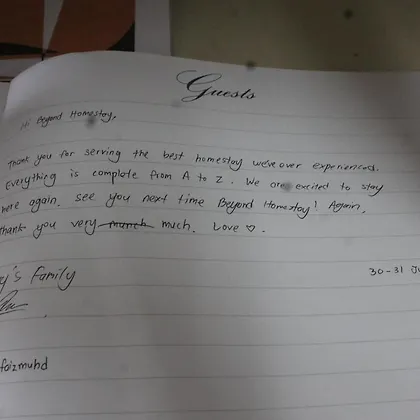 Guests
Hi Beyond Homestay,
Thank you for serving the best homestay we've ever experienced.
Everything is complete from A to Z. We are excited to stay
here again. See you next time Beyond Homestay! Again,
thank you very munch much. Love ♡.
y's Family
30-31 Ju
faizmuhd